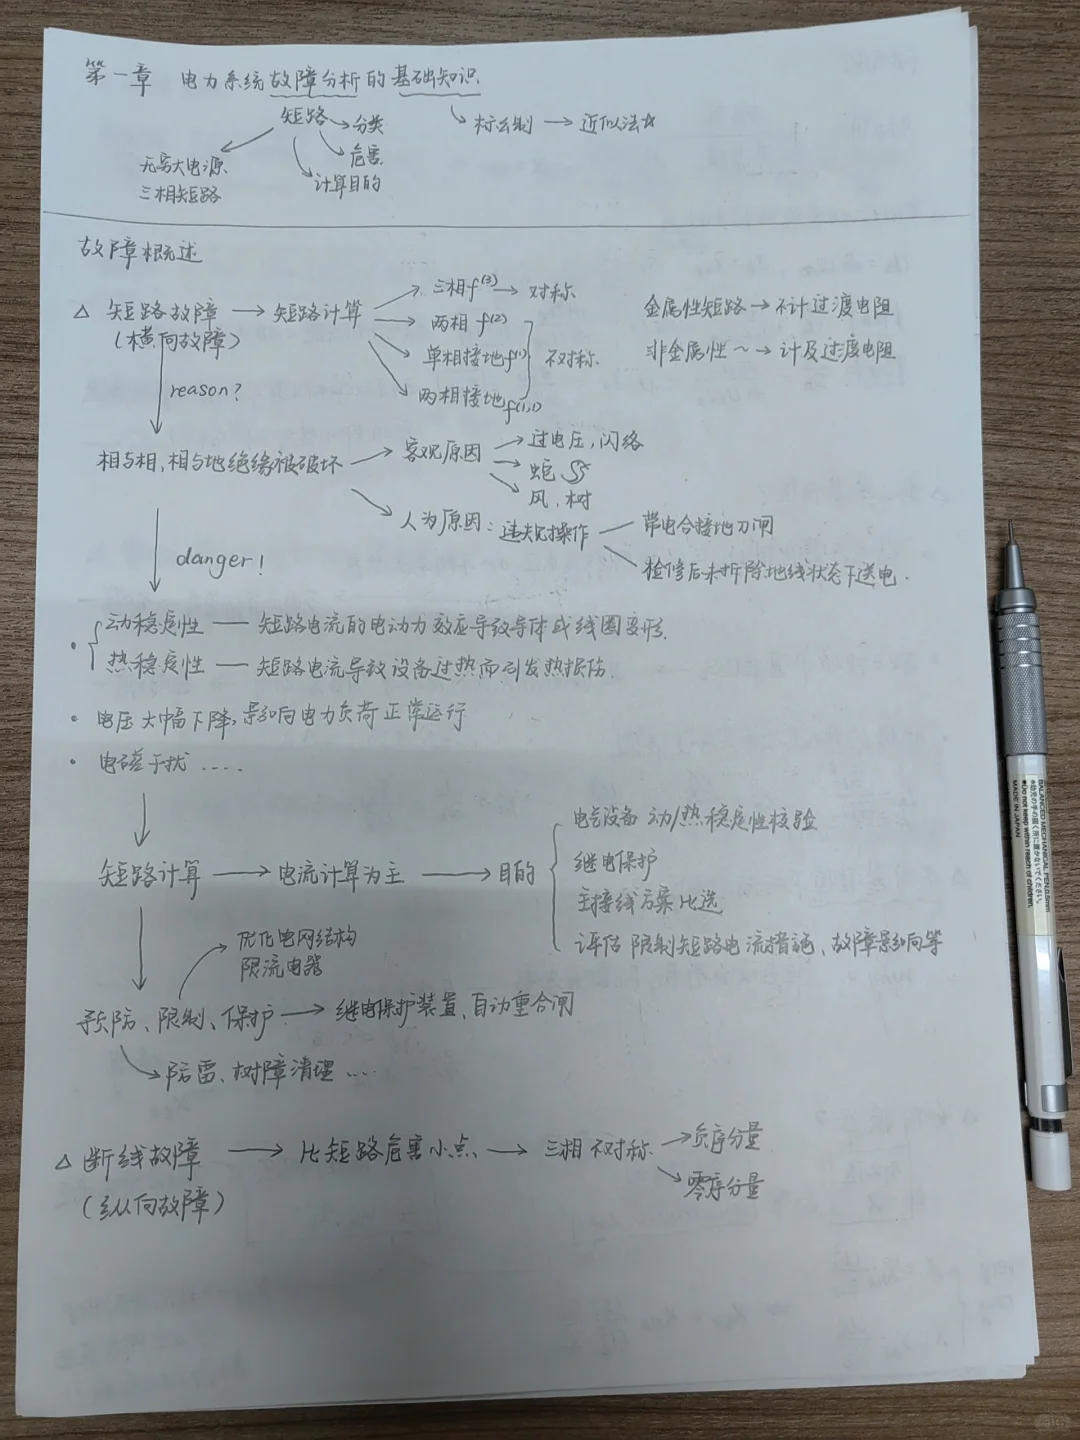 第一章 电力系统故障分析的基础知识
短路 → 分类
→ 标幺制 → 近似法☆
危害
无穷大电源
三相短路
计算目的
故障概述
△ 短路故障 → 短路计算
(横向故障)
三相f⁽³⁾ → 对称
两相 f⁽²⁾
单相接地f⁽¹⁾
两相接地f⁽¹,¹⁾
不对称
金属性短路 → 不计过渡电阻
非金属性 ~ → 计及过渡电阻
reason?
相与相,相与地绝缘被破坏
客观原因 → 过电压,闪络
蛇
风,树
人为原因:违规操作
带电合接地刀闸
检修后未拆除地线状态下送电.
danger!
· 动稳定性 —— 短路电流的电动力效应导致导体或线圈变形.
热稳定性 —— 短路电流导致设备过热而引发热损伤.
· 电压大幅下降,影响电力负荷正常运行
· 电磁干扰 .....
短路计算 → 电流计算为主 → 目的
电气设备 动/热稳定性校验
继电保护
主接线方案比选
评估 限制短路电流措施、故障影响等
优化电网结构
限流电器
预防、限制、保护 → 继电保护装置、自动重合闸
防雷、树障清理 ....
△ 断线故障 → 比短路危害小点 → 三相不对称 → 负序分量
(纵向故障)
零序分量
BALANCED MECHANICAL PEN 0.5mm
●幼児の手の届く所に置かないでください。
●Do not keep within reach of children.
MADE IN JAPAN